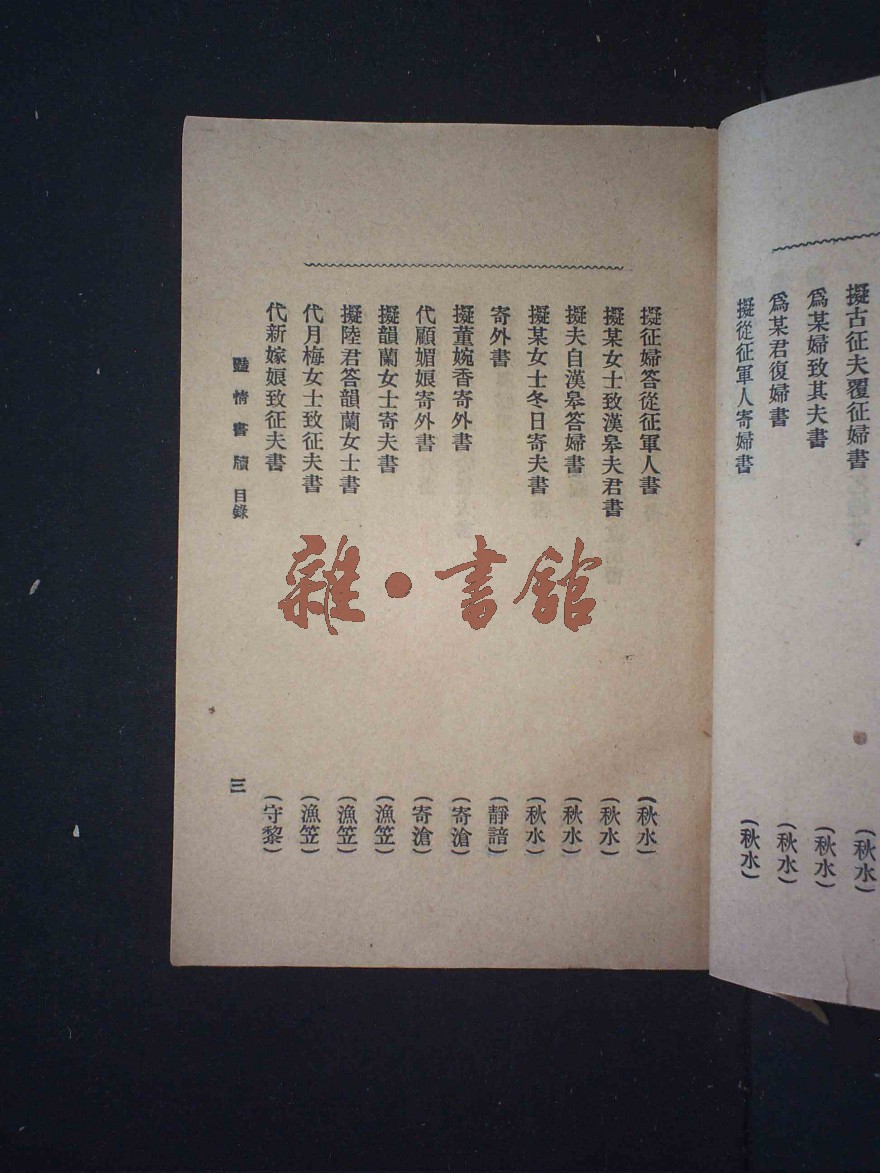 擬古征夫覆征婦書(秋水)
爲某婦致其夫書(秋水)
爲某君復婦書(秋水)
擬從征軍人寄婦書(秋水)
擬征婦答從征軍人書(秋水)
擬某女士致漢皋夫君書(秋水)
擬夫自漢皋答婦書(秋水)
擬某女士冬日寄夫書(秋水)
寄外書(靜諳)
擬董婉香寄外書(寄滄)
代顧媚娘寄外書(寄滄)
擬韻蘭女士寄夫書(漁笠)
擬陸君答韻蘭女士書(漁笠)
代月梅女士致征夫書(漁笠)
代新嫁娘致征夫書(守黎)
豔情書牘 目錄
三
雜·書館